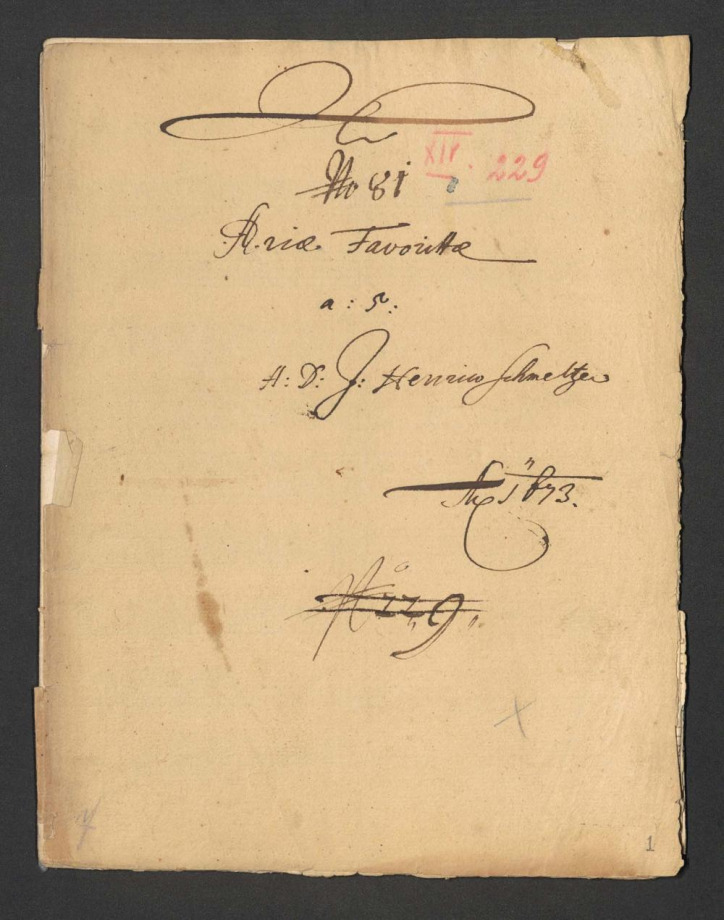 No 81 XIV. 229
Ariæ Favorittæ
a: 5:
A: D: J: Henrico Schmeltzer
Aō 1673.
No 229.
1